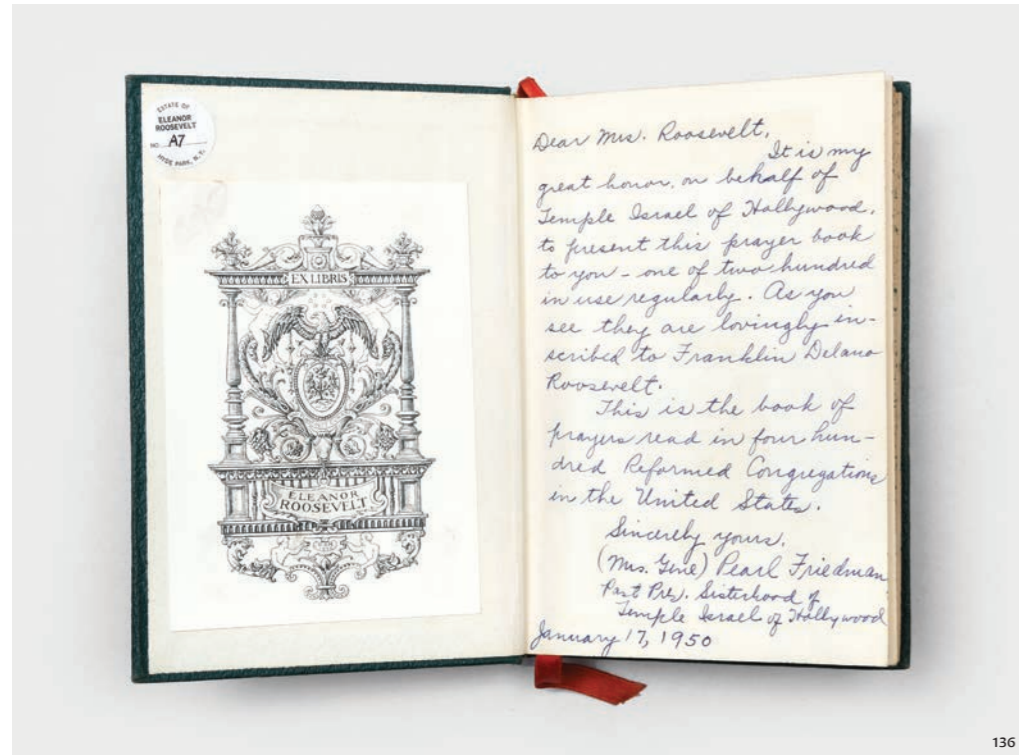 ESTATE OF
ELEANOR
ROOSEVELT
NO. A7
HYDE PARK, N.Y.
EX LIBRIS
ELEANOR
ROOSEVELT
Dear Mrs. Roosevelt,
It is my
great honor, on behalf of
Temple Israel of Hollywood,
to present this prayer book
to you - one of two hundred
in use regularly. As you
see they are lovingly in-
scribed to Franklin Delano
Roosevelt.
This is the book of
prayers read in four hun-
dred Reformed Congregations
in the United States.
Sincerely yours,
(Mrs. Gene) Pearl Friedman
Past Pres. Sisterhood of
Temple Israel of Hollywood
January 17, 1950
136